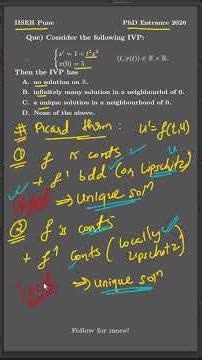 IISER Pune PhD Entrance 2020
Que) Consider the following IVP:
{ x' = 1 + t²x²
x(0) = 5 (t, x(t)) ∈ ℝ × ℝ.
Then the IVP has
A. no solution on ℝ.
B. infinitely many solution in a neighbourhd of 0.
C. a unique solution in a neighbourhood of 0.
D. None of the above.
# Picard thrm : u' = f(t,u)
① f is conts u
+ f' bdd (or Lipschitz)
⇒ unique solⁿ
② f is conts
+ f' conts (locally
Lipschitz)
⇒ unique solⁿ
Follow for more!